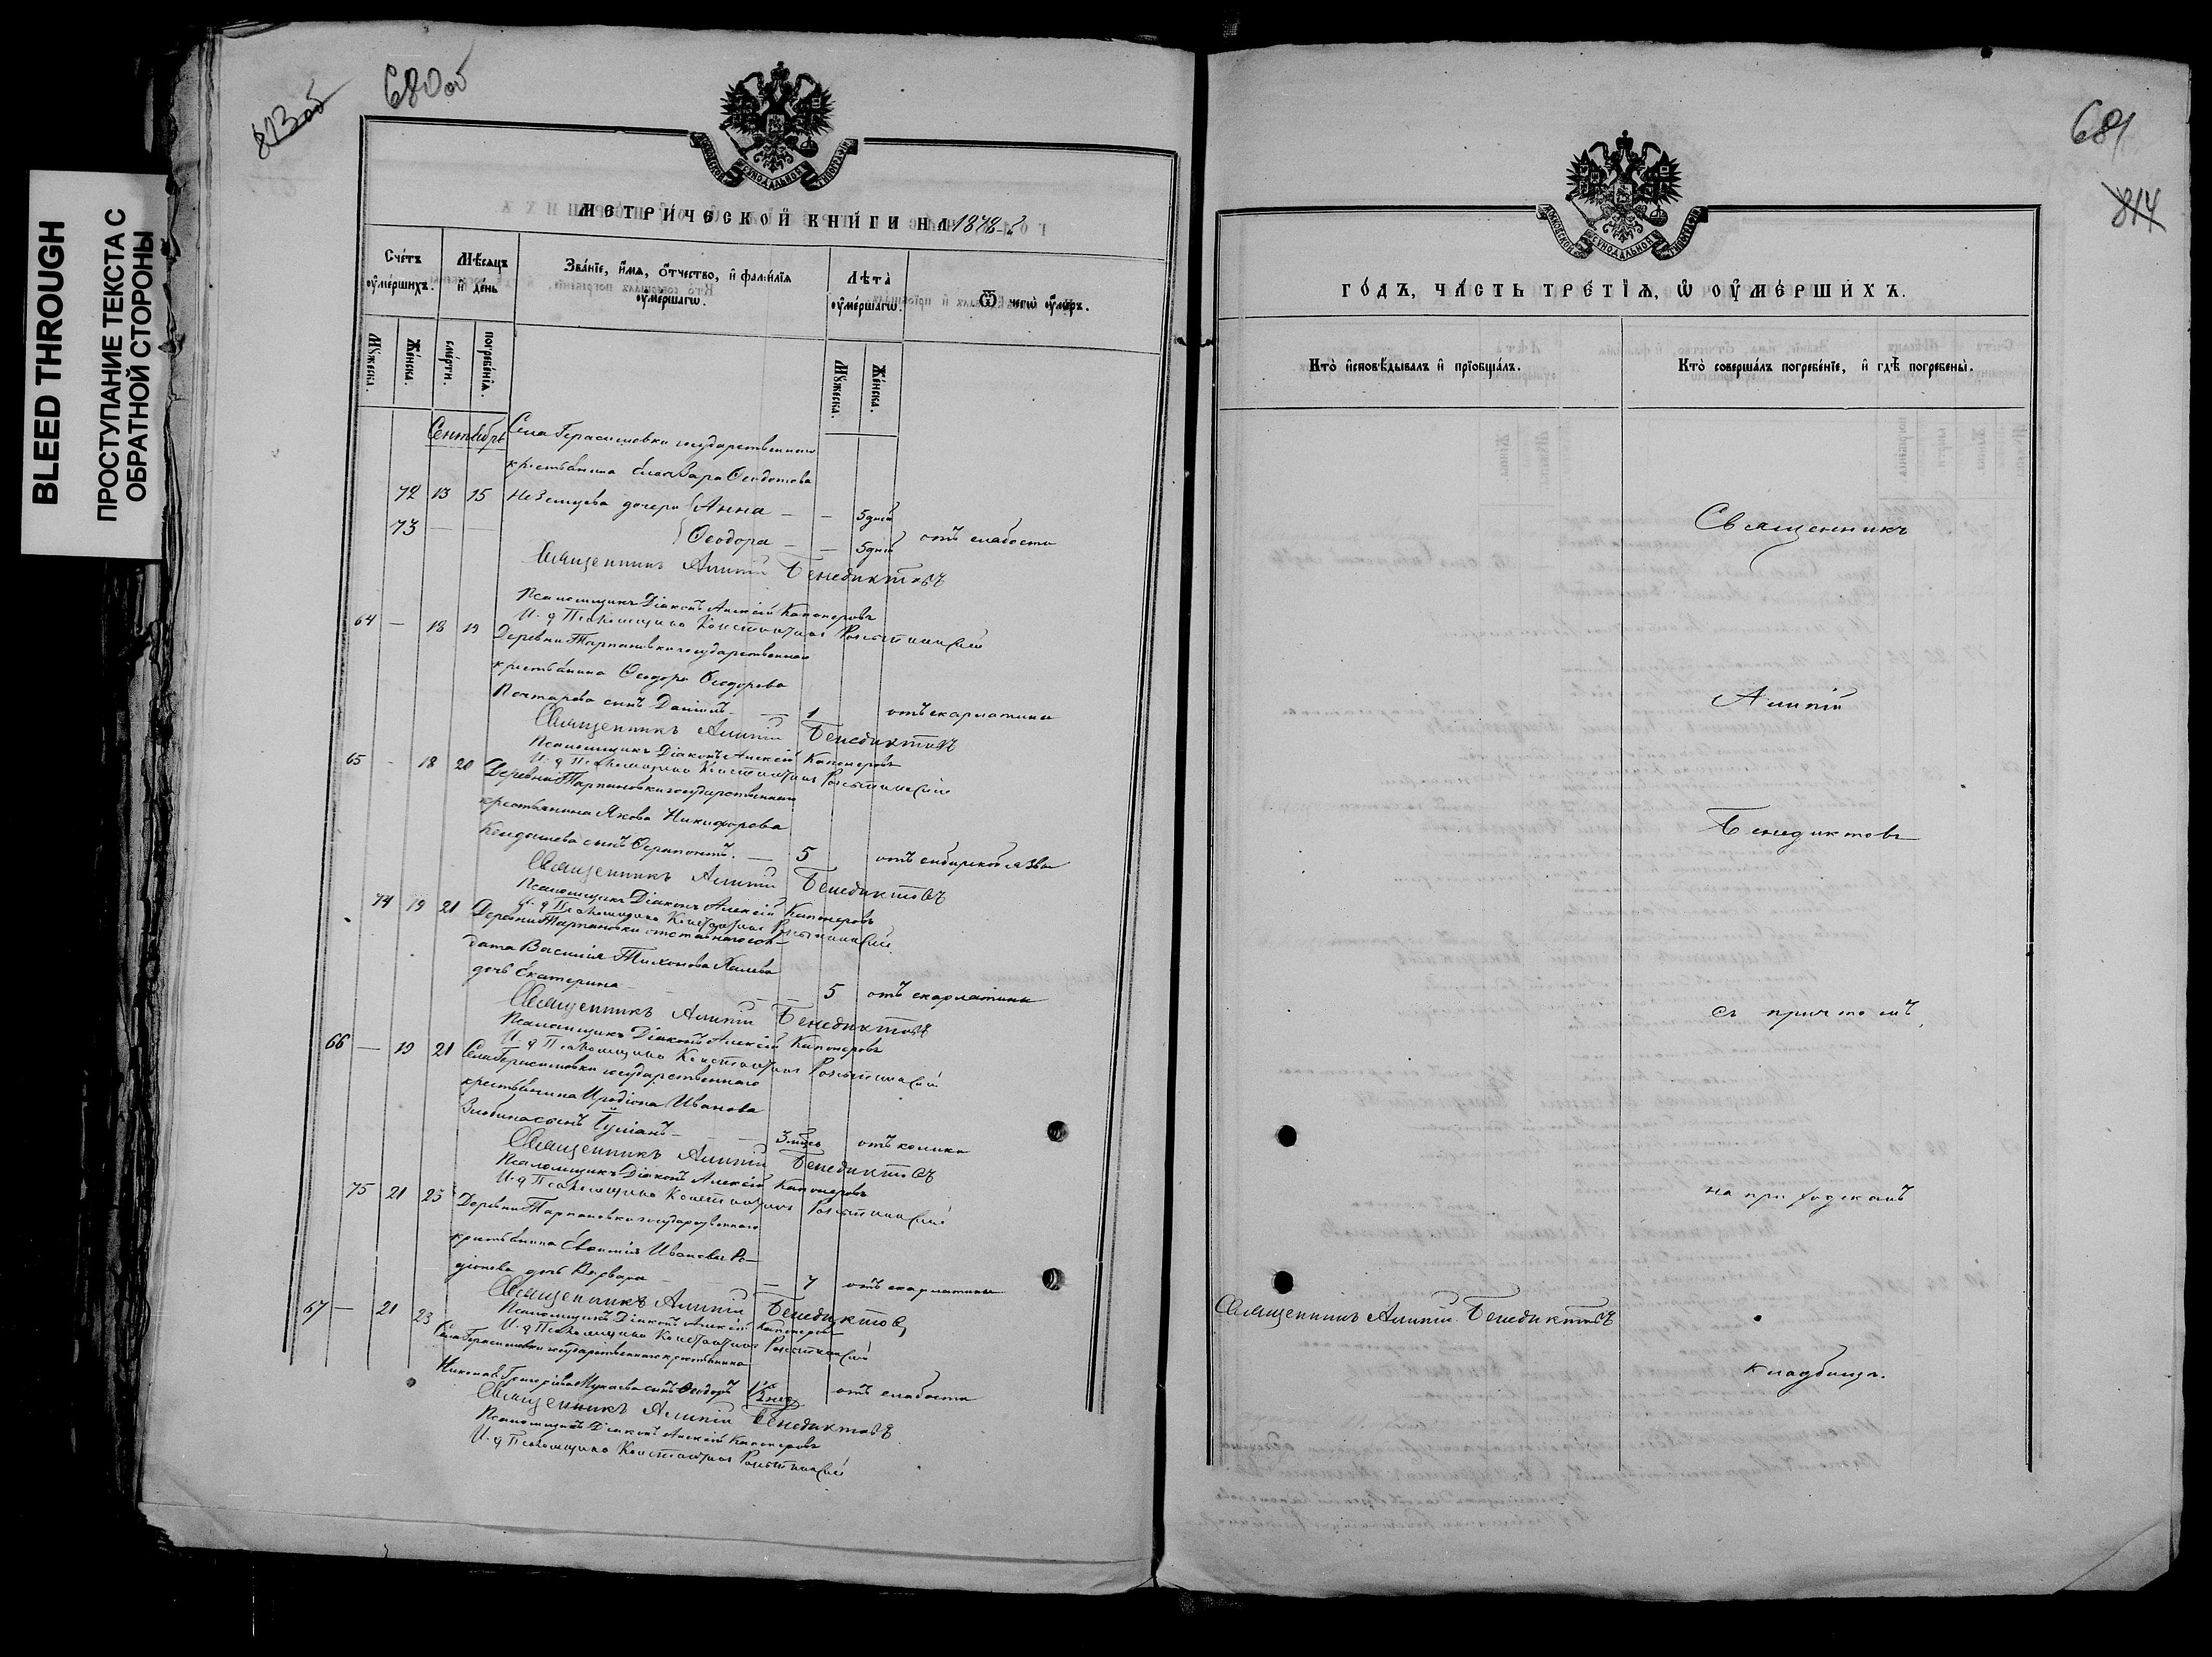 BLEED THROUGH
ПРОСТУПАНИЕ ТЕКСТА С
ОБРАТНОЙ СТОРОНЫ
813об
680об
МОСКОВСКОЙ СѴНОДАЛЬНОЙ ТИПОГРАФІИ
МЕТРИ́ЧЕСКОЙ КНИ́ГИ НА 1878-й
Счéтъ ᲂумéршихъ.
Мѣ́сяцъ и҆ день
Звáнїе, и҆́мѧ, ѻ҆́тчество, и҆ фамѝлїѧ ᲂумéршагѡ.
Лѣ́та ᲂумéршагѡ.
Ѿ чегѡ̀ ᲂу҆́меръ.
Мꙋ́жеска.
Жéнска.
смéрти.
погребéнїѧ.
Мꙋ́жеска.
Жéнска.
Сентябрь
Села Герасимовки государственнаго
крестьянина Елеазара Ѳеодотова
72 13 15 Незамцева дочери Анна — — 5 дней
73 — — Ѳеодора — — 5 дней отъ слабости
Священникъ Алипій Бенедиктовъ
Псаломщикъ Діаконъ Алексій Каноперовъ
И. д. Псаломщика Константинъ
64 — 18 19 Деревни Тарпановки государственнаго
крестьянина Ѳеодора Ѳеодорова
сынъ Даніилъ — 1 отъ скарлатины
Священникъ Алипій Бенедиктовъ
Псаломщикъ Діаконъ Алексій Каноперовъ
И. д. Псаломщика Константинъ
65 — 18 20 Деревни Тарпановки государственнаго
крестьянина Якова Никифорова
Кендашева сынъ Ѳерапонтъ. — 5 отъ сибирской язвы
Священникъ Алипій Бенедиктовъ
Псаломщикъ Діаконъ Алексій Каноперовъ
И. д. Псаломщика Константинъ
74 19 21 Деревни Тарпановки отставнаго сол-
дата Василія Тихонова
дочь Екатерина — — — 5 отъ скарлатины
Священникъ Алипій Бенедиктовъ
Псаломщикъ Діаконъ Алексій Каноперовъ
И. д. Псаломщика Константинъ
66 — 19 21 Села Герасимовки государственнаго
крестьянина Иродіона Иванова
Злобина сынъ Іуліанъ — — 3 мѣс. отъ колики
Священникъ Алипій Бенедиктовъ
Псаломщикъ Діаконъ Алексій Каноперовъ
И. д. Псаломщика Константинъ
75 21 23 Деревни Тарпановки государственнаго
крестьянина Иванова Ро-
діонова дочь Варвара — — 7 отъ скарлатины
Священникъ Алипій Бенедиктовъ
Псаломщикъ Діаконъ Алексій Каноперовъ
И. д. Псаломщика Константинъ
67 — 21 23 Села Герасимовки государственнаго крестьянина
Николая Григорьева сынъ Ѳеодоръ отъ слабости
Священникъ Алипій Бенедиктовъ
Псаломщикъ Діаконъ Алексій Каноперовъ
И. д. Псаломщика Константинъ
681
814
МОСКОВСКОЙ СѴНОДАЛЬНОЙ ТИПОГРАФІИ
ГО́ДЪ, ЧА́СТЬ ТРЕ́ТЇѦ, Ѡ҆ ОУ҆МЕ́РШИХЪ.
Ктò и҆сповѣ́дывалъ и҆ прїобщáлъ.
Ктò совершáлъ погребéнїе, и҆ гдѣ̀ погребены̀.
Священникъ
Алипій
Бенедиктовъ
съ причтомъ,
на приходскомъ
Священникъ Алипій Бенедиктовъ
кладбищѣ.